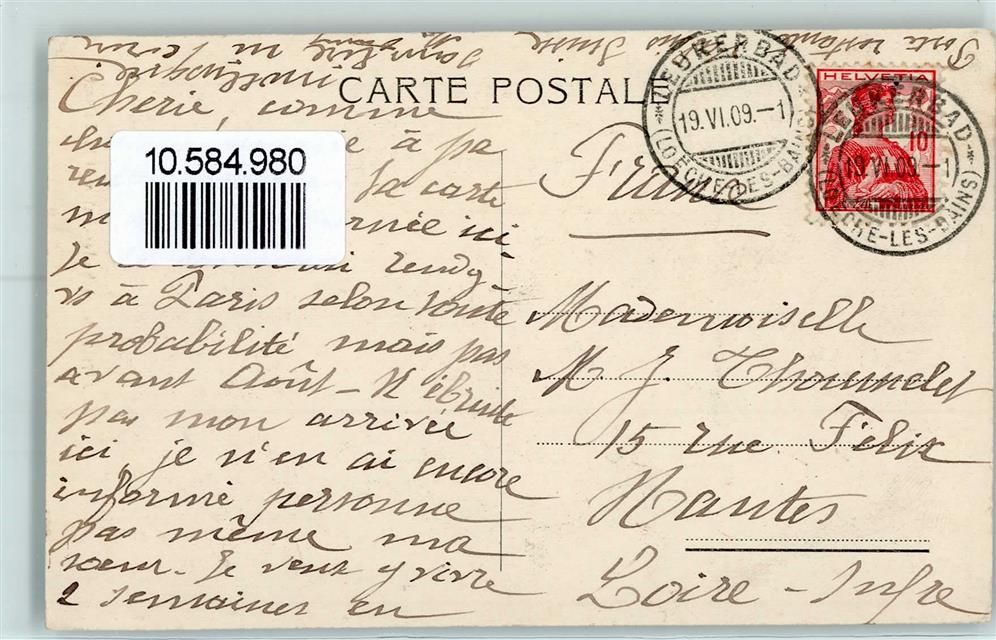 CARTE POSTALE
LEUKERBAD
19.VI.09.-1
(LOÈCHE-LES-BAINS)
HELVETIA
10
LEUKERBAD
19.VI.09.-1
(LOÈCHE-LES-BAINS)
10.584.980
Chérie, comme
à pa
la carte
ici
Je rendg
vs à Paris selon toute
probabilité mais pas
avant Août - N'ébruite
pas mon arrivée
ici, je n'en ai encore
informé personne
pas même ma
sœur. Je veux y vivre
2 semaines en
Poste restante Suisse
France
Mademoiselle
M J.
15 rue Félix
Nantes
Loire-Infre